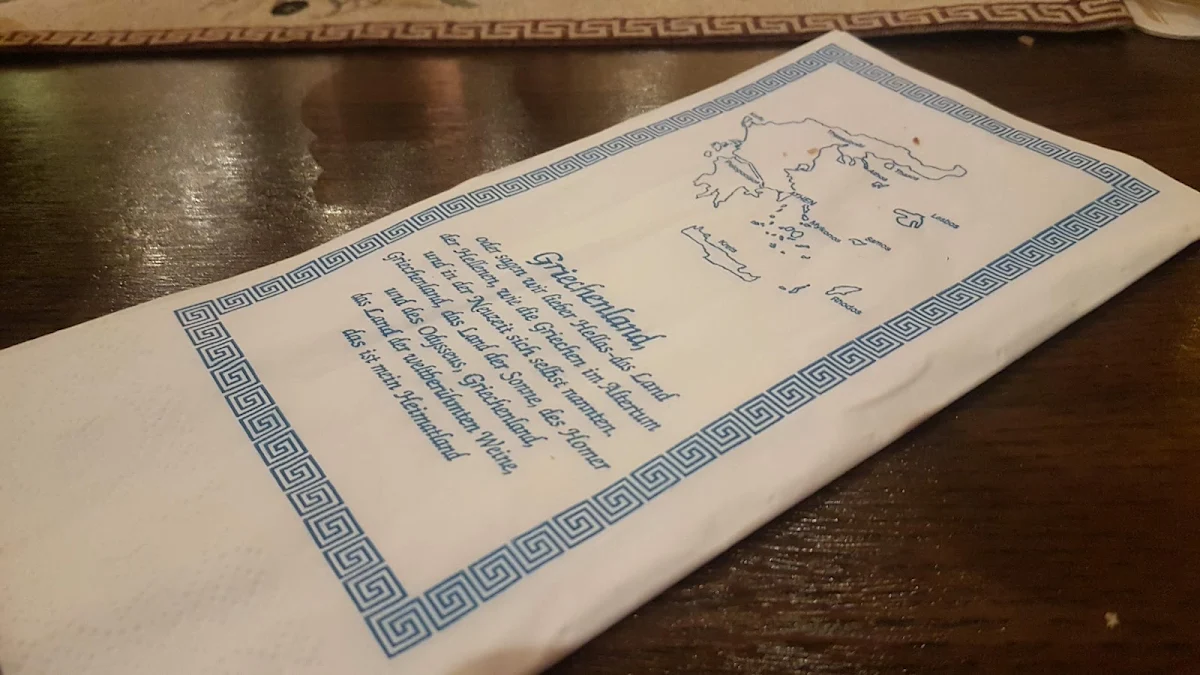 Thassos
Athos
Peloponnes
Athen
Lesbos
Mykonos
Samos
Kreta
Rhodos
Griechenland,
oder sagen wir lieber Hellas-das Land
der Hellenen, wie die Griechen im Altertum
und in der Neuzeit sich selbst nannten.
Griechenland, das Land der Sonne, des Homer
und des Odysseus, Griechenland,
das Land der weltberühmten Weine,
das ist mein Heimatland